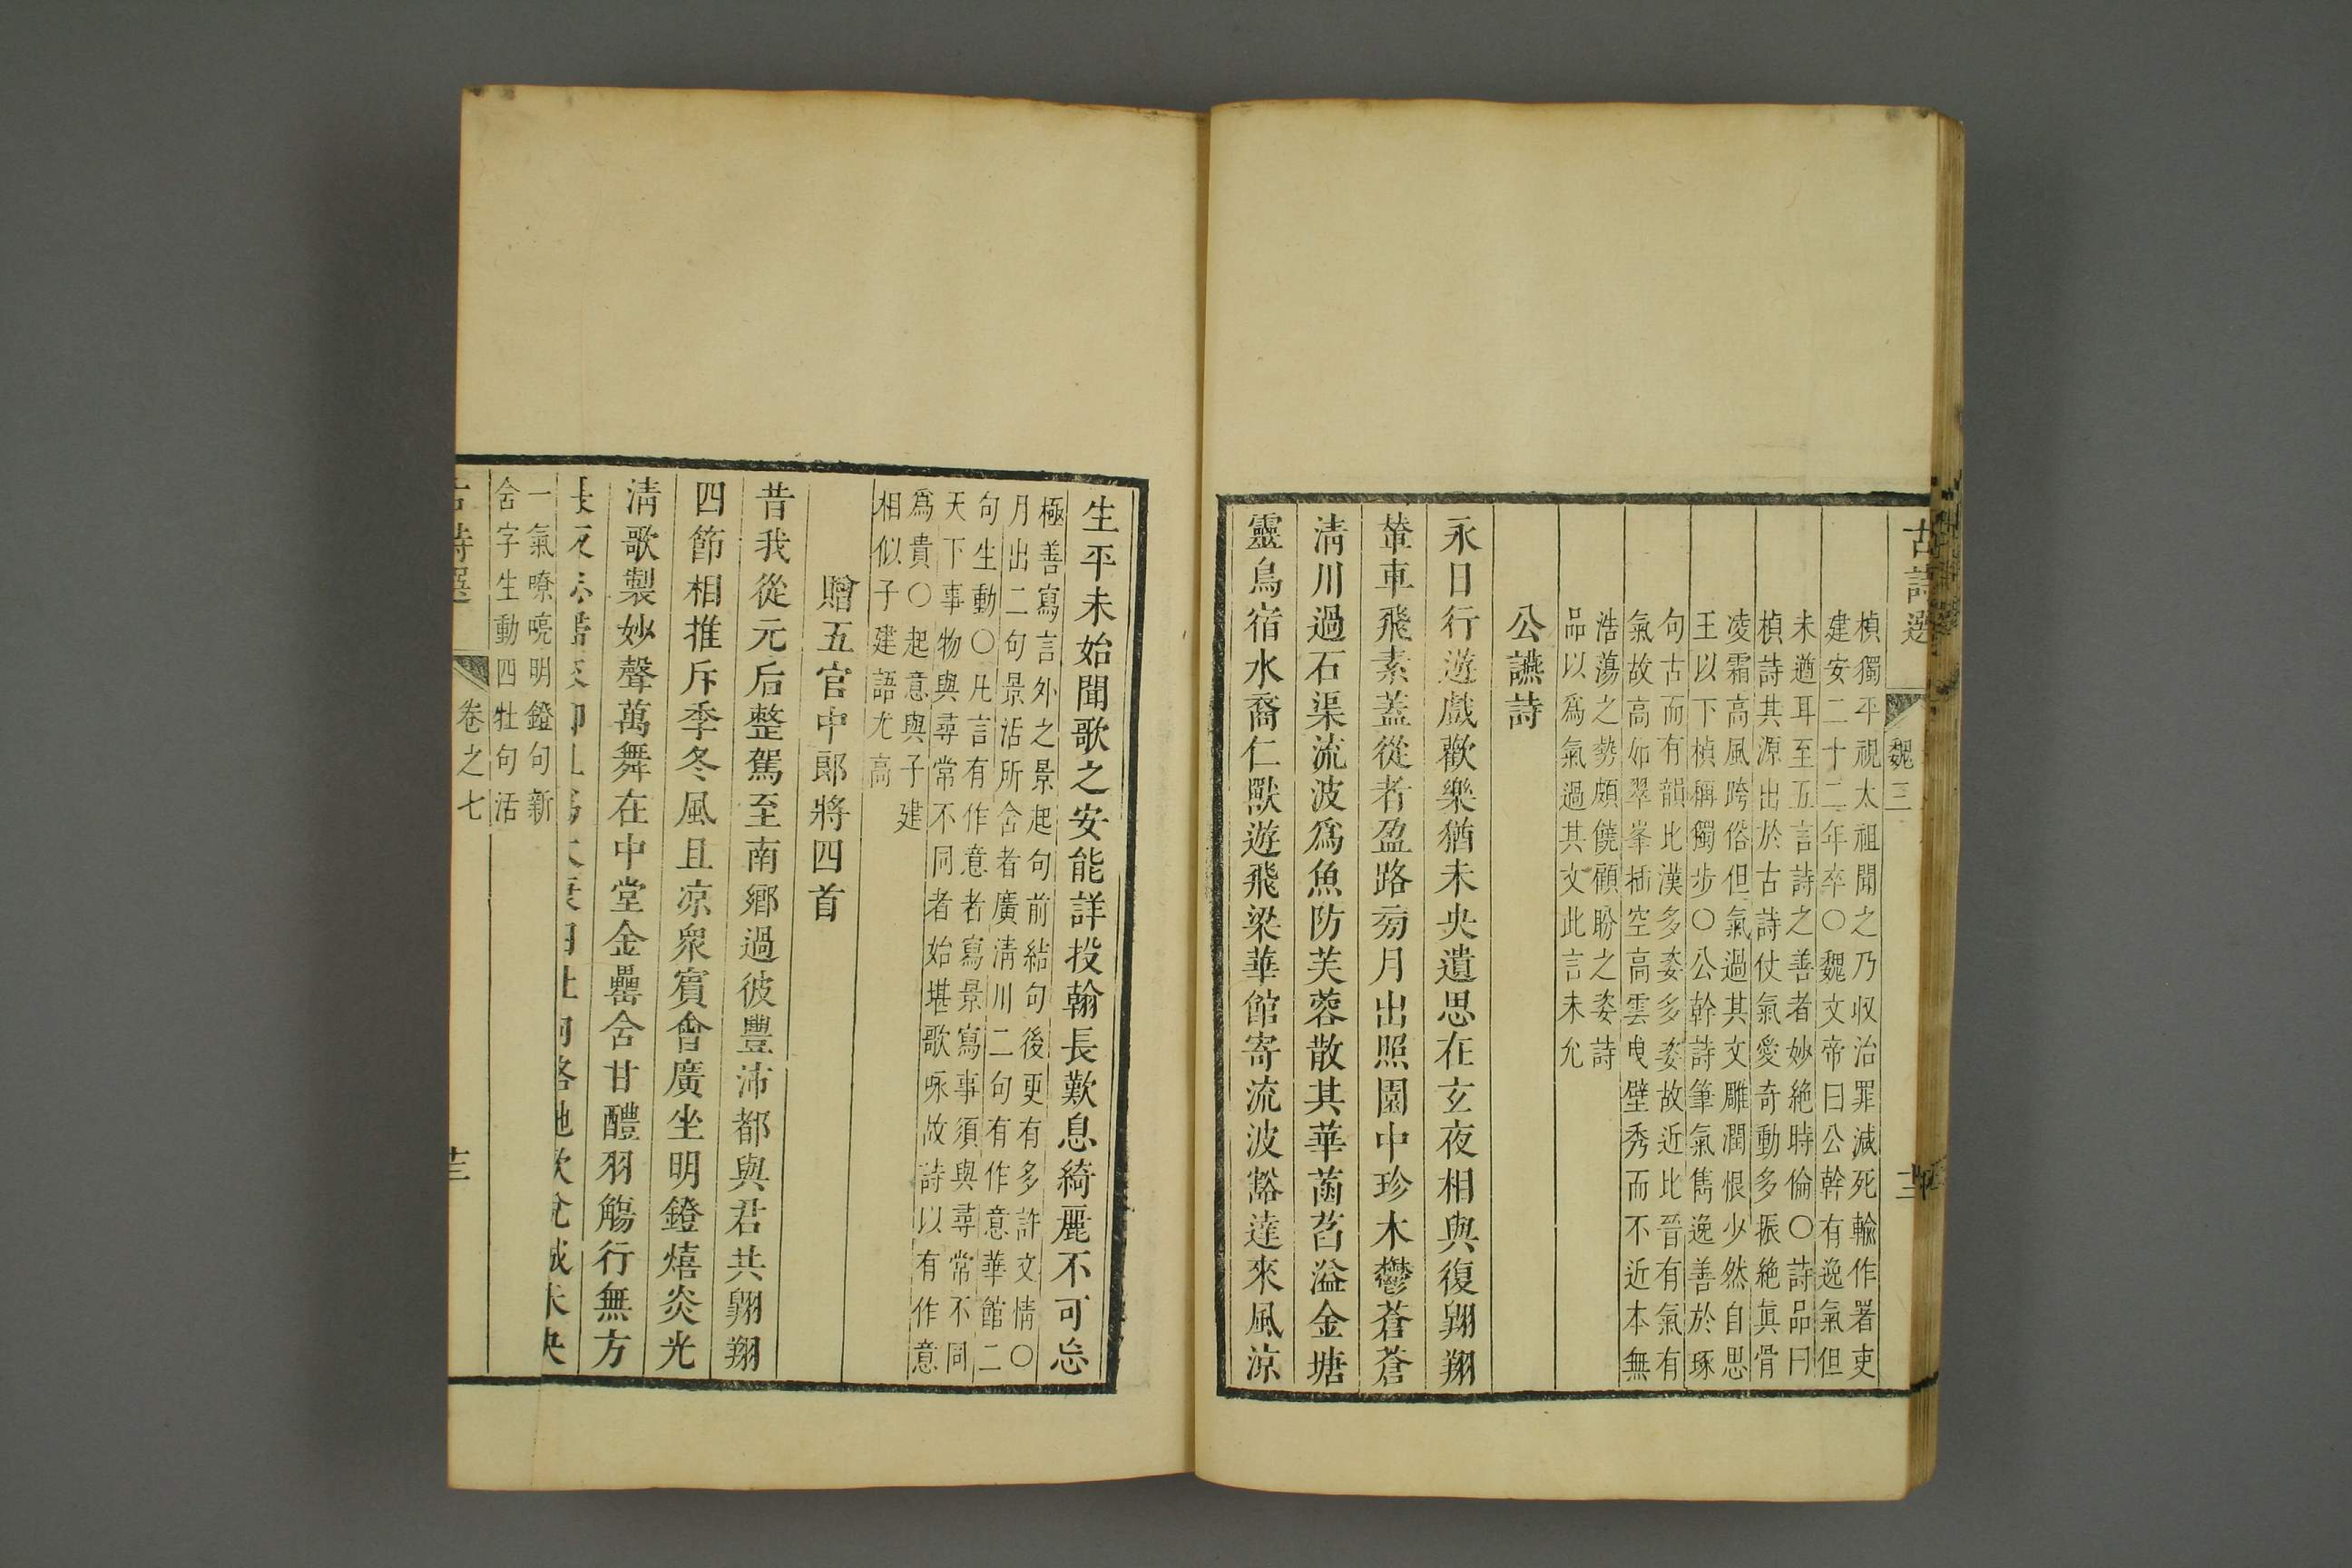 古詩選
魏三
楨獨平視太祖聞之乃収治罪減死輸作署吏
建安二十二年卒○魏文帝曰公幹有逸氣但
未遒耳至五言詩之善者妙絶時倫○詩品曰
楨詩其源出於古詩仗氣愛奇動多振絶眞骨
凌霜高風跨俗但氣過其文雕潤恨少然自思
王以下楨稱獨步○公幹詩筆氣雋逸善於琢
句古而有韻比漢多姿多姿故近比晉有氣有
氣故高如翠峯插空高雲曳壁秀而不近本無
浩蕩之勢頗饒顧盼之姿詩
品以爲氣過其文此言未允
公讌詩
永日行遊戲歡樂猶未央遺思在玄夜相與復翱翔
輦車飛素蓋從者盈路旁月出照園中珍木鬱蒼蒼
淸川過石渠流波爲魚防芙蓉散其華菡萏溢金塘
靈鳥宿水裔仁獸遊飛梁華館寄流波豁達來風涼
生平未始聞歌之安能詳投翰長歎息綺麗不可忘
極善寫言外之景起句前結句後更有多許文情○
月出二句景活所含者廣淸川二句有作意華館二
句生動○凡言有作意者寫景寫事須與尋常不同
天下事物與尋常不同者始堪歌咏故詩以有作意
爲貴○起意與子建
相似子建語尤高
贈五官中郞將四首
昔我從元后整駕至南鄉過彼豐沛都與君共翱翔
四節相推斥季冬風且凉衆賓會廣坐明鐙熺炎光
淸歌製妙聲萬舞在中堂金罍含甘醴羽觴行無方
長夜忘歸來
未央
一氣嘹喨明鐙句新
含字生動四牡句活
古詩選
卷之七